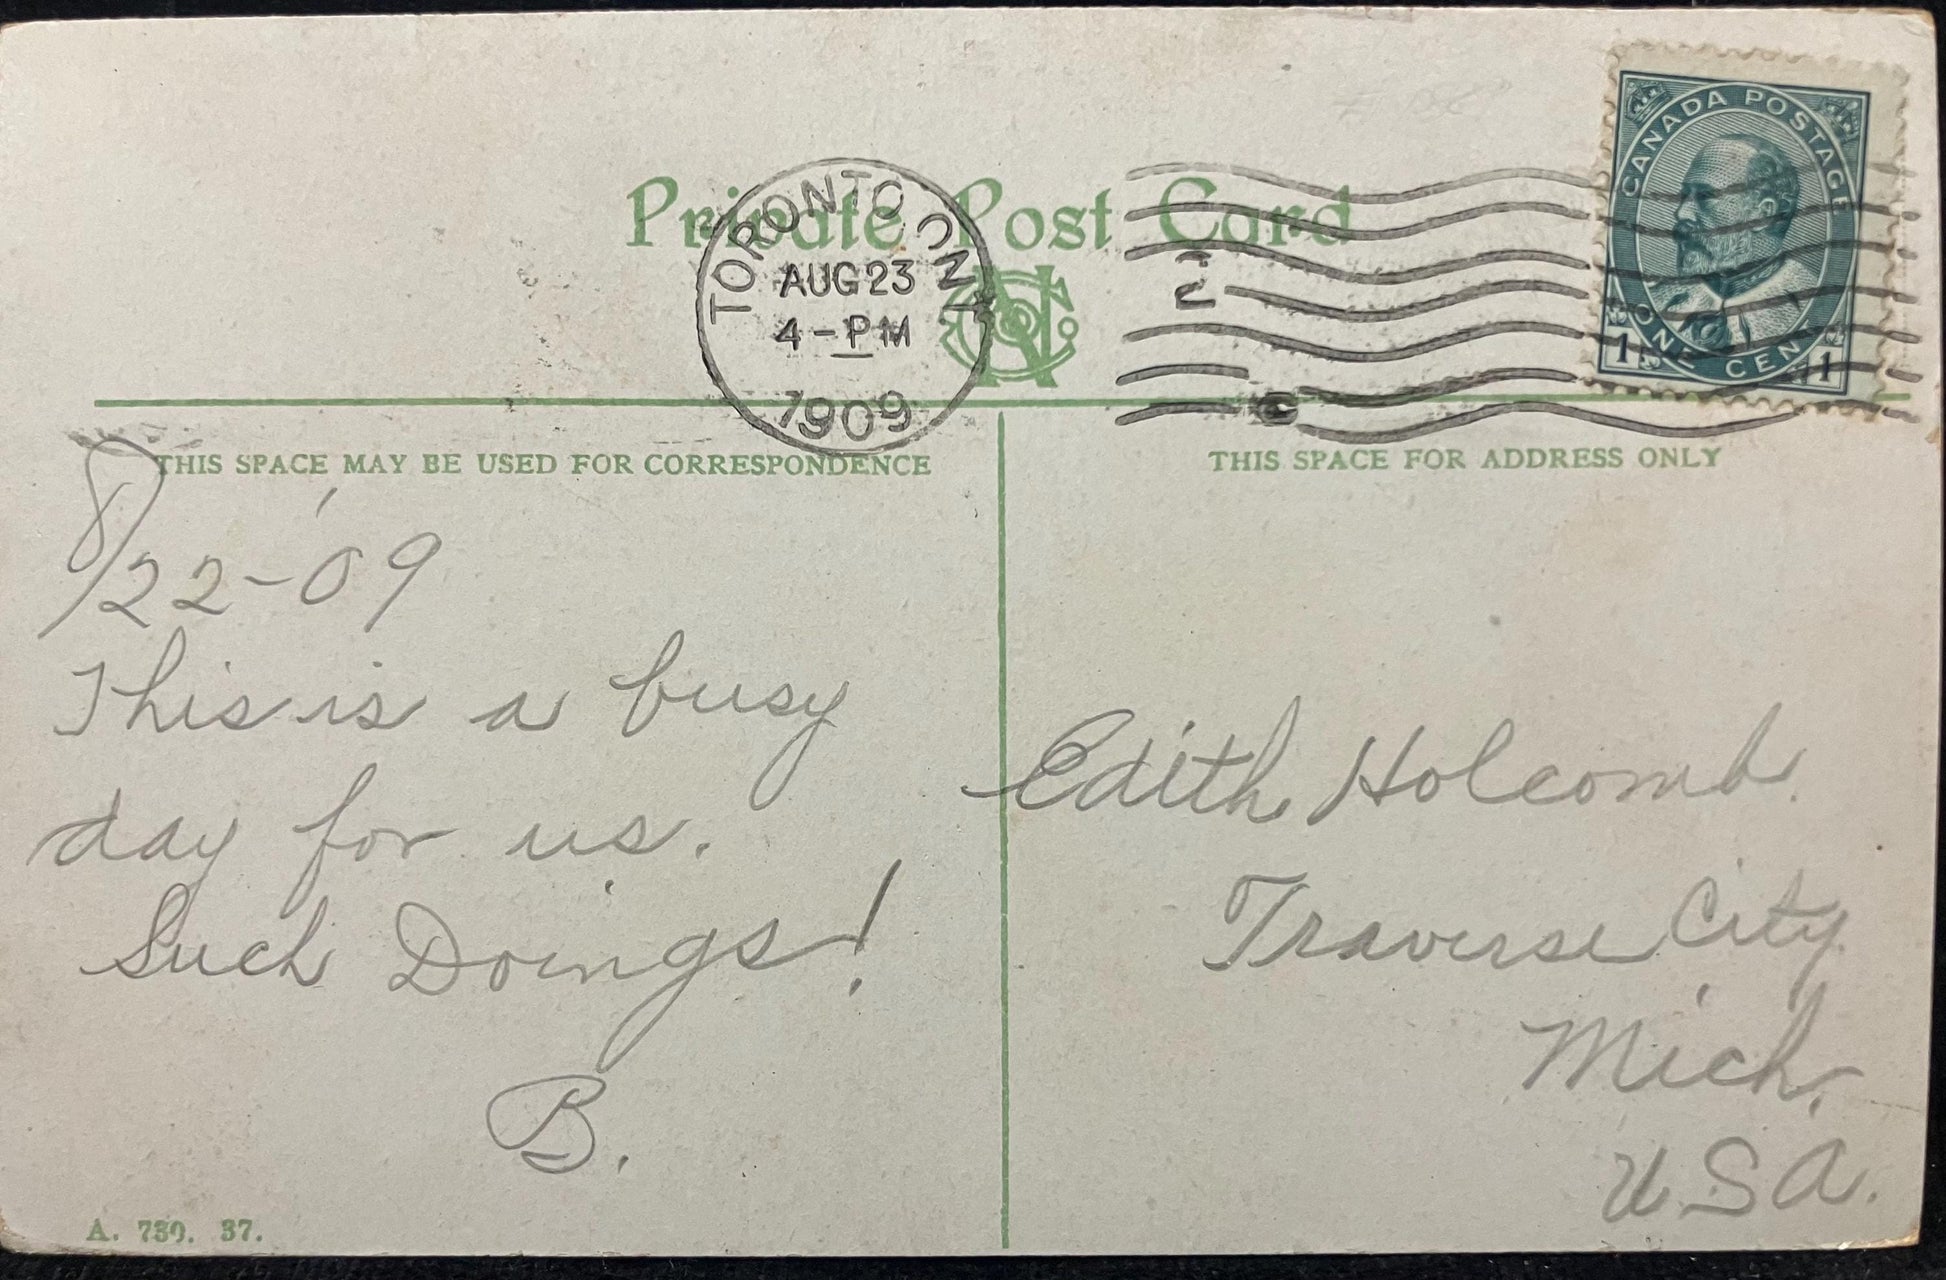 Private Post Card
TORONTO ONT.
AUG 23
4-PM
1909
CANADA POSTAGE
ONE CENT
1 1
THIS SPACE MAY BE USED FOR CORRESPONDENCE
THIS SPACE FOR ADDRESS ONLY
8/22-'09
This is a busy
day for us.
Such Doings!
B.
Edith Holcomb.
Traverse City
Mich.
U.S.A.
A. 730. 37.